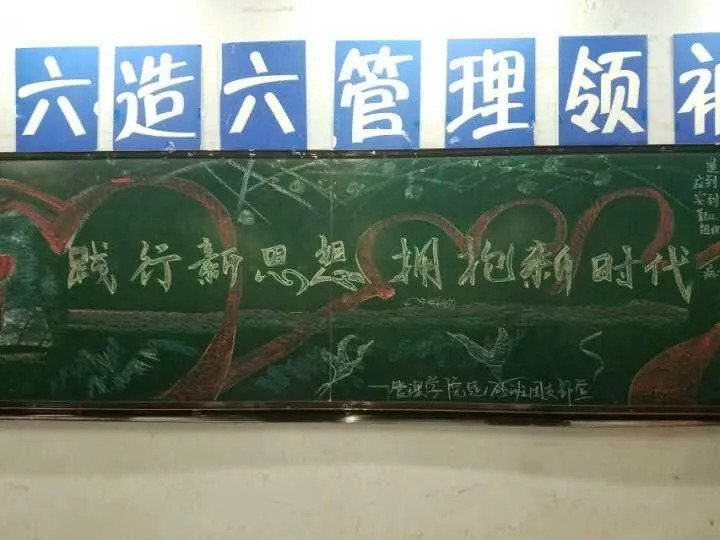 六造六管理领
践行新思想 拥抱新时代
管理学院
团支部宣